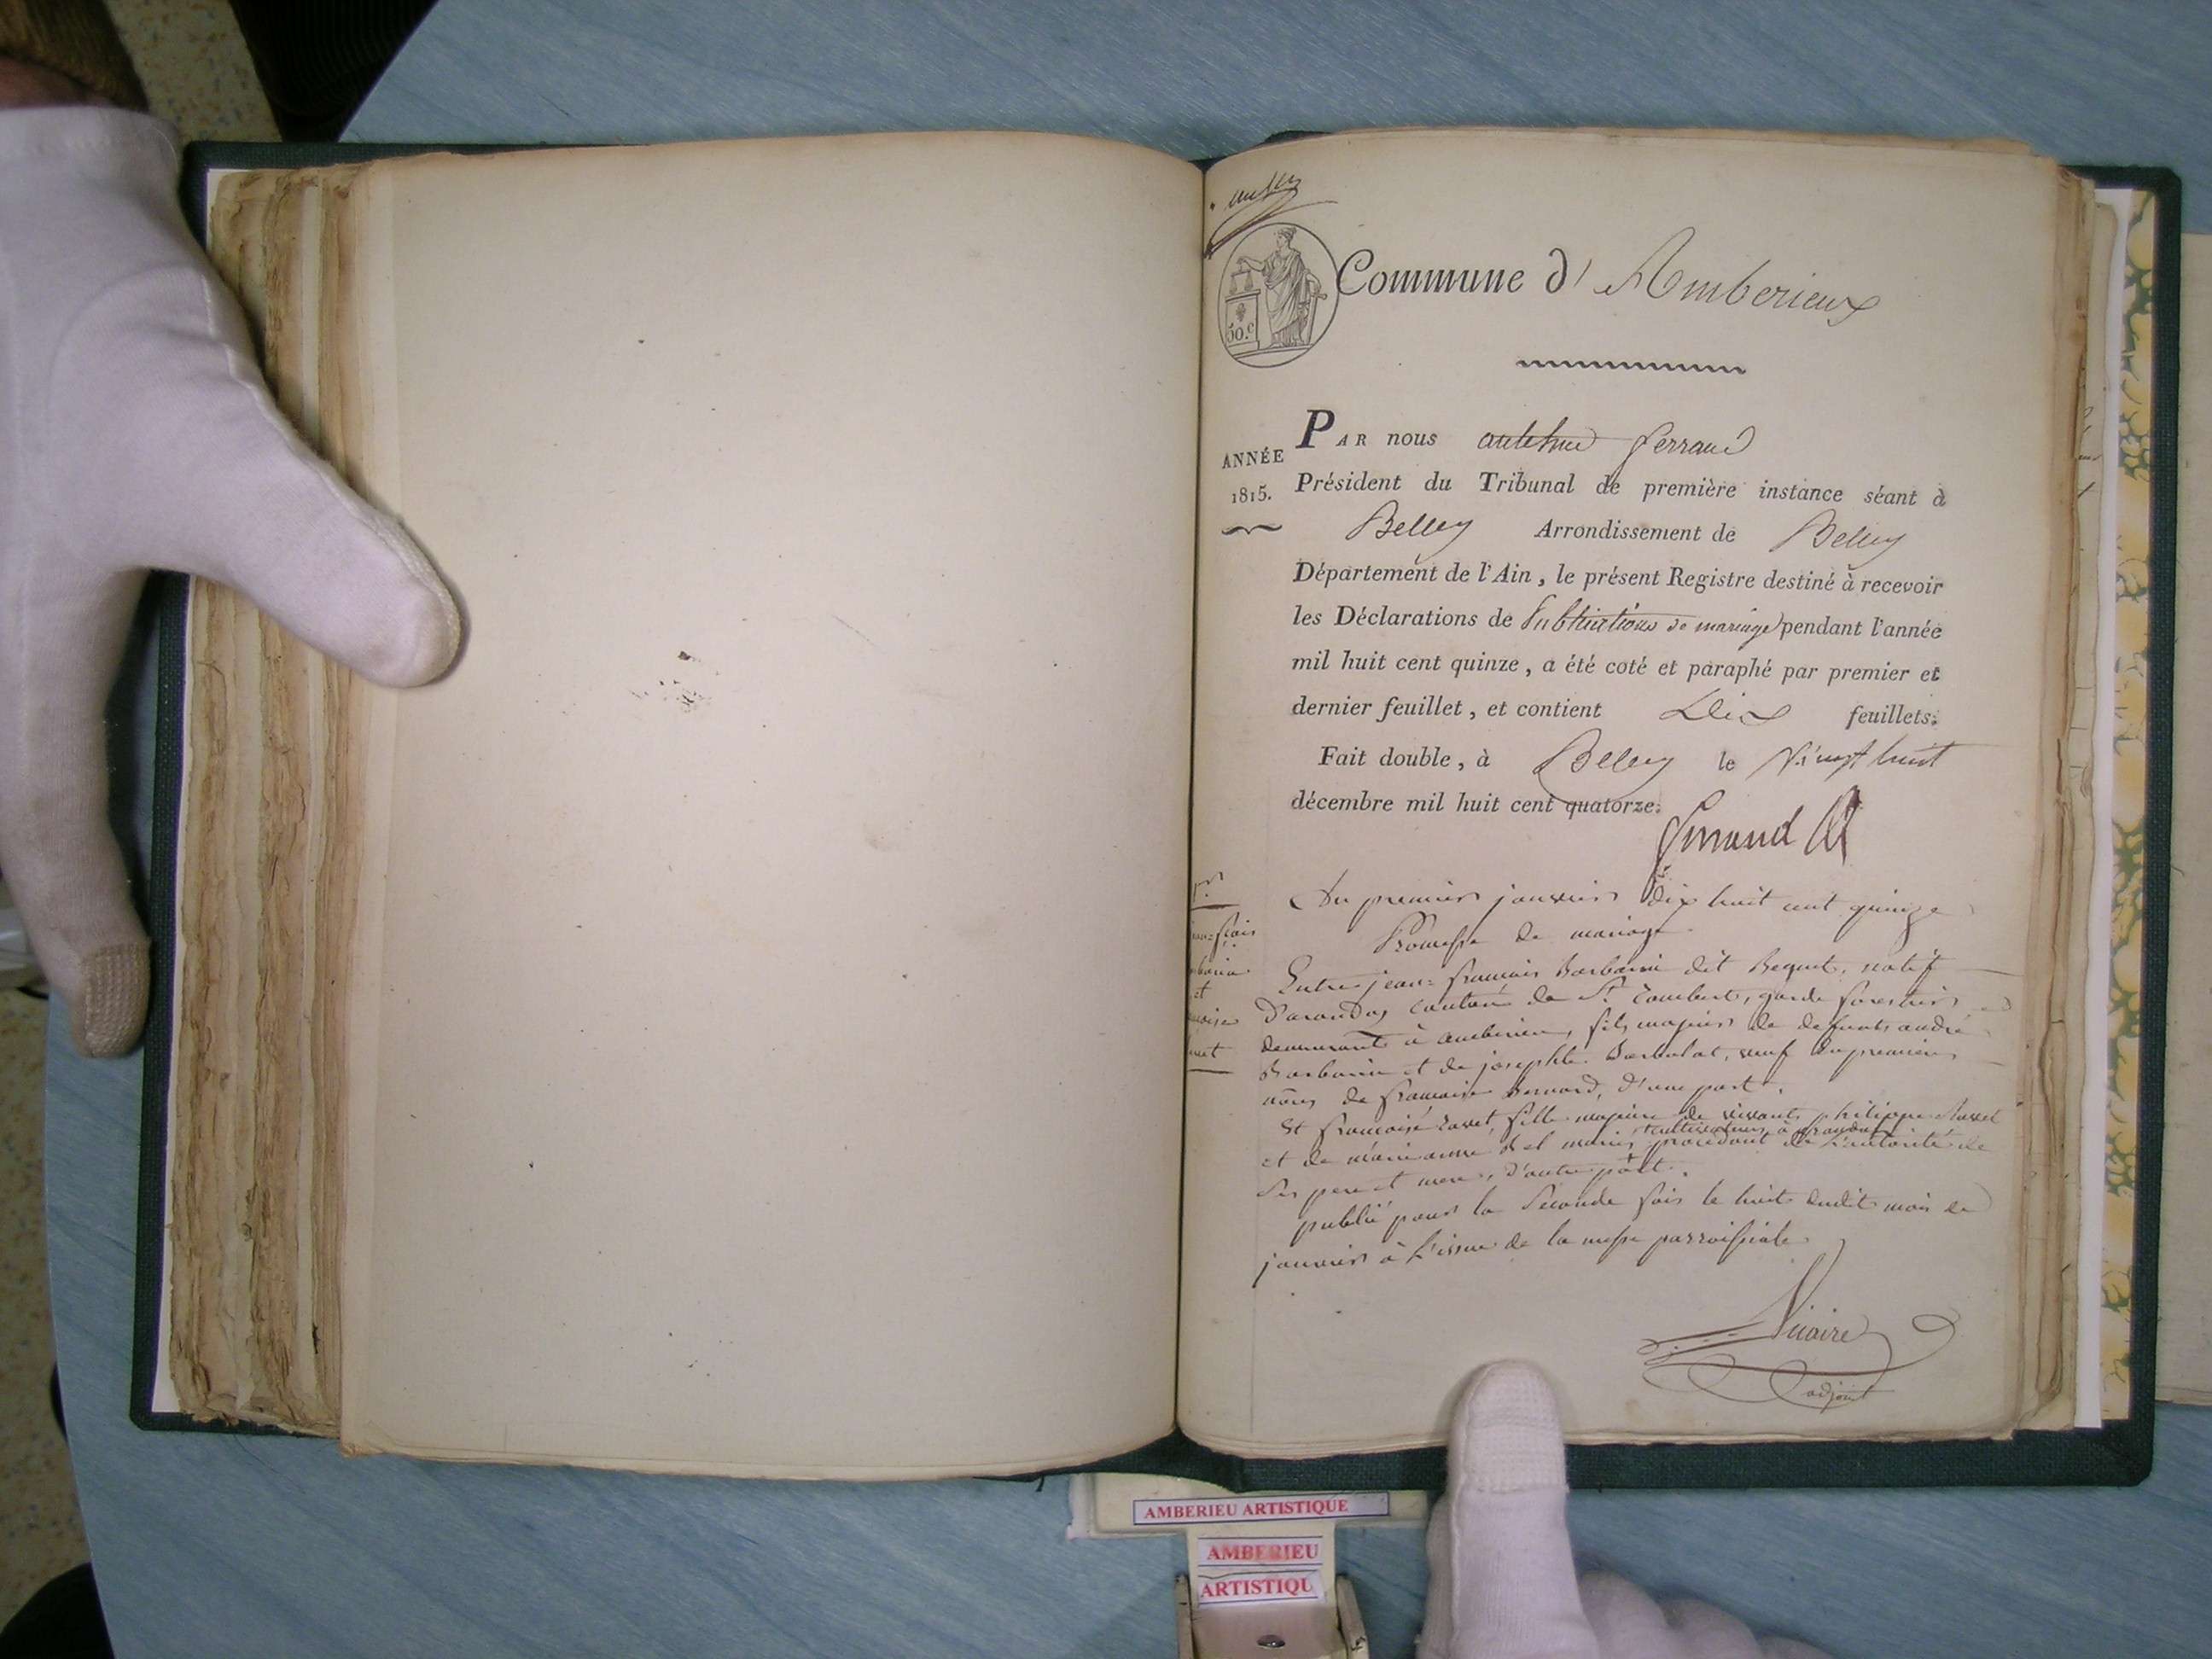 50.c
Commune d' Amberieux
ANNÉE
1815.
PAR nous ferrand
Président du Tribunal de première instance séant à
Belley Arrondissement de Belley
Département de l'Ain, le présent Registre destiné à recevoir
les Déclarations de Publications de mariage pendant l'année
mil huit cent quinze, a été coté et paraphé par premier et
dernier feuillet, et contient Dix feuillets.
Fait double, à Belley le vingt huit
décembre mil huit cent quatorze.
ferrand
Du premier janvier dix huit cent quinze
Promesse de mariage
Entre jean=francois Barbarin dit Bequet, natif
D'arandas canton de St. rambert, garde forestier
demeurant à amberieu, fils majeur de defunts andré
Barbarin et de josephte, veuf en premieres
nôces de francoise Bernard, D'une part.
Et francoise ravet, fille majeure de vivants philippe Ravet
cultivateurs à arandas
et de marie anne mariés procedant de l'autorité de
ses pere et mere, D'autre part.
publié pour la seconde fois le huit dudit mois de
janvier à l'issue de la messe parroissiale.
adjoint
AMBERIEU ARTISTIQUE
AMBERIEU
ARTISTIQU